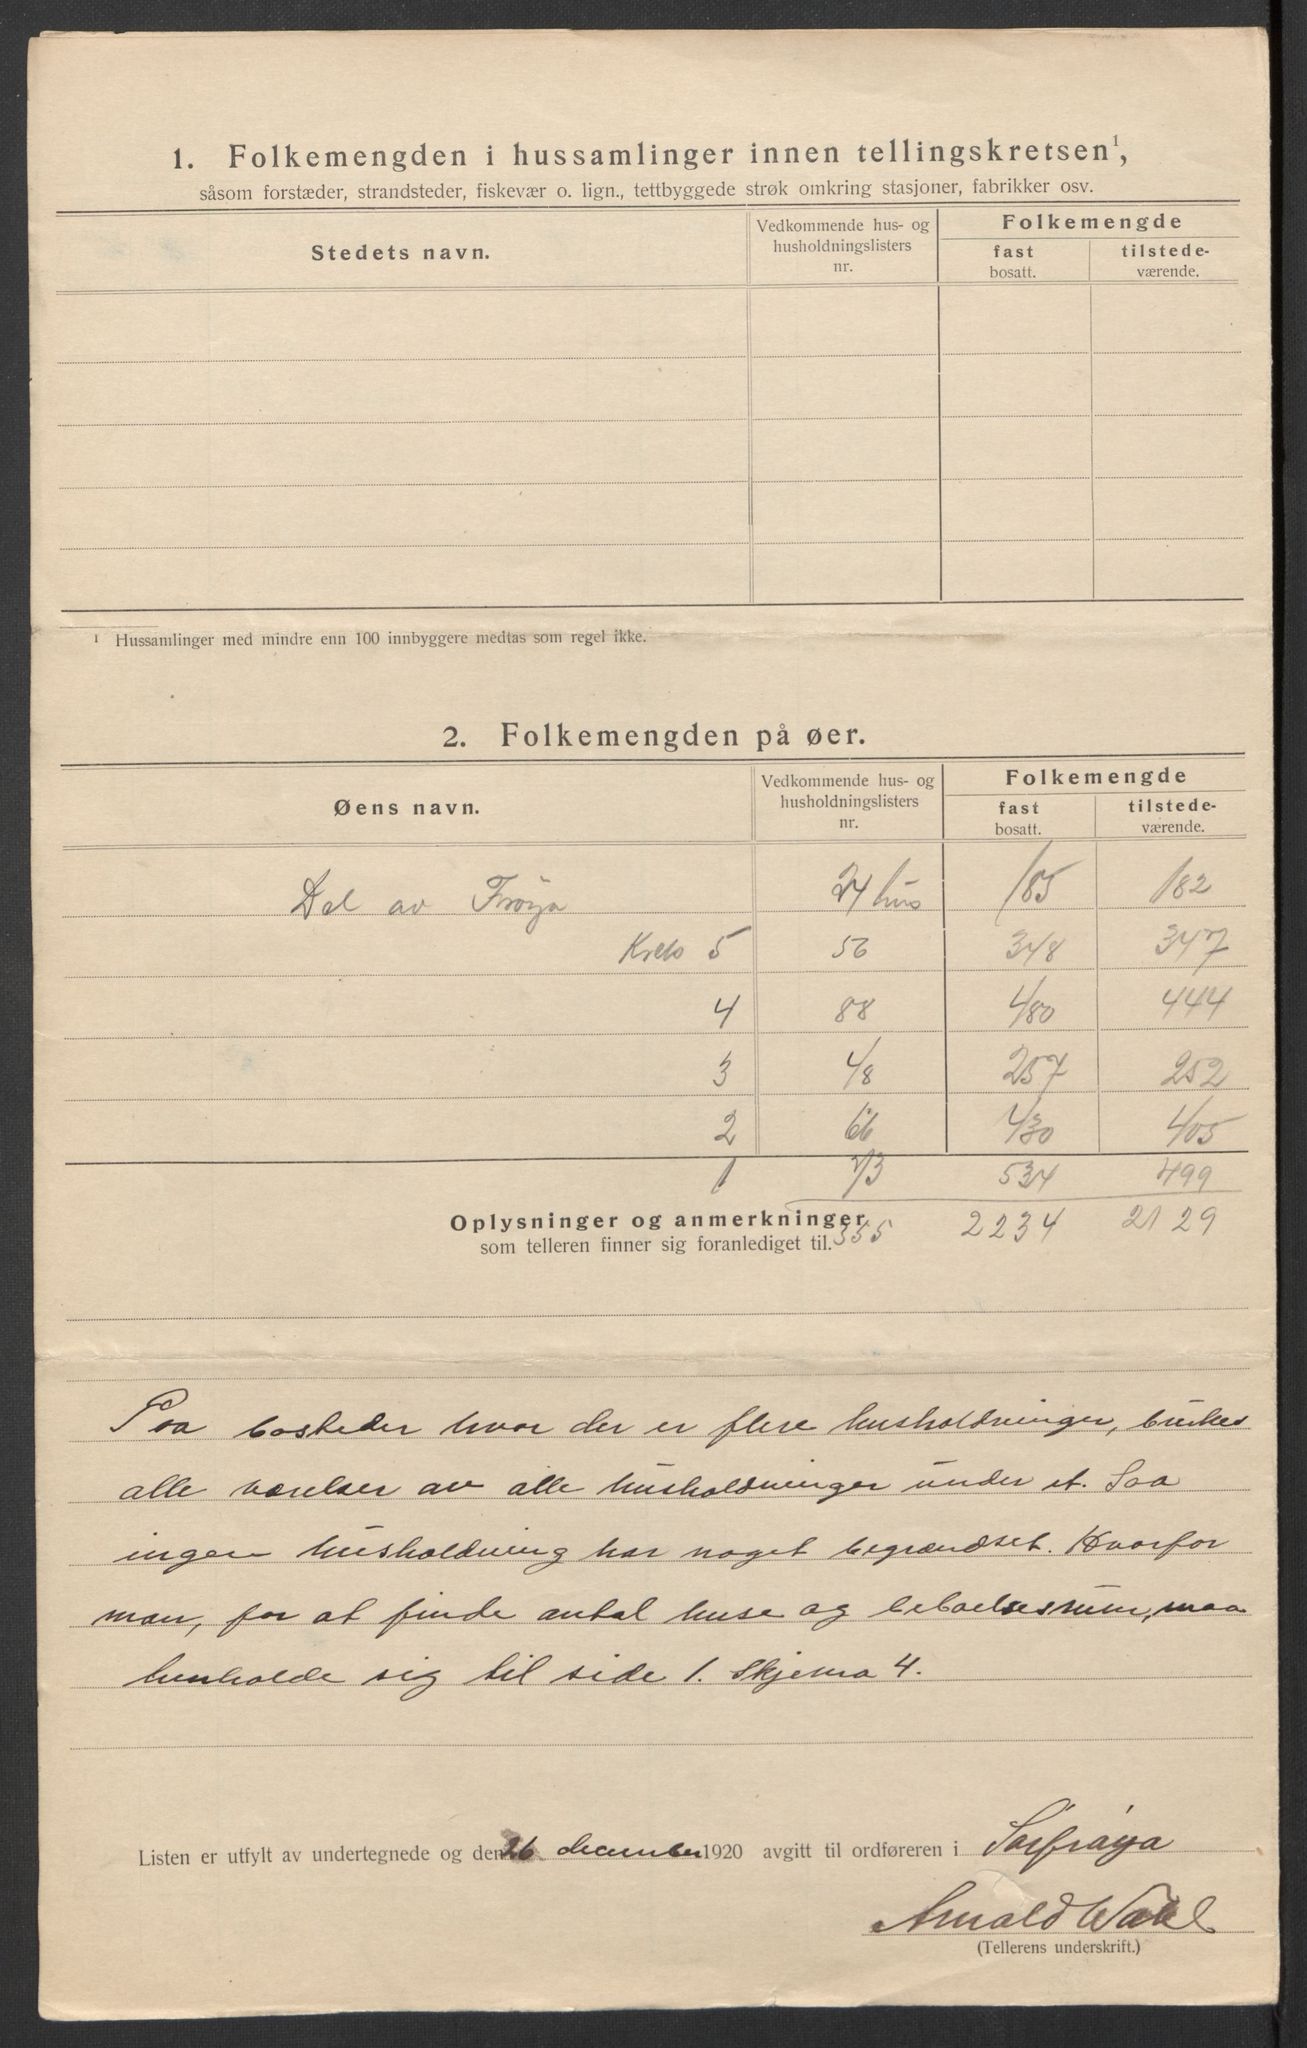 1. Folkemengden i hussamlinger innen tellingskretsen¹,
såsom forstæder, strandsteder, fiskevær o. lign., tettbyggede strøk omkring stasjoner, fabrikker osv.
Stedets navn. Vedkommende hus- og husholdningslisters nr. Folkemengde fast bosatt. tilstede-værende.
¹ Hussamlinger med mindre enn 100 innbyggere medtas som regel ikke.
2. Folkemengden på øer.
Øens navn. Vedkommende hus- og husholdningslisters nr. Folkemengde fast bosatt. tilstede-værende.
Del av Frøya 24 hus 185 182
Kreds 5 56 348 347
4 88 480 444
3 48 257 252
2 66 430 405
1 73 534 499
Oplysninger og anmerkninger 355 2234 2129
som telleren finner sig foranlediget til.
Paa bosteder hvor der er flere husholdninger, brukes
alle værelser av alle husholdninger under et. Saa
ingen husholdning har noget begrændset. Hvorfor
man, for at finde antal huse og beboelsesrum, maa
henholde sig til side 1. Skjema 4.
Listen er utfylt av undertegnede og den 26 december 1920 avgitt til ordføreren i Sørfrøya
Arnold Wahl
(Tellerens underskrift.)